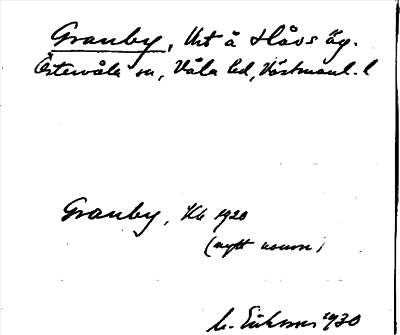 Granby, Urt å Håvs äg.
Östervåla sn, Våla hd, Västmanl. l
Granby, Kb 1920
(nytt namn)
M. Eriksson 1930